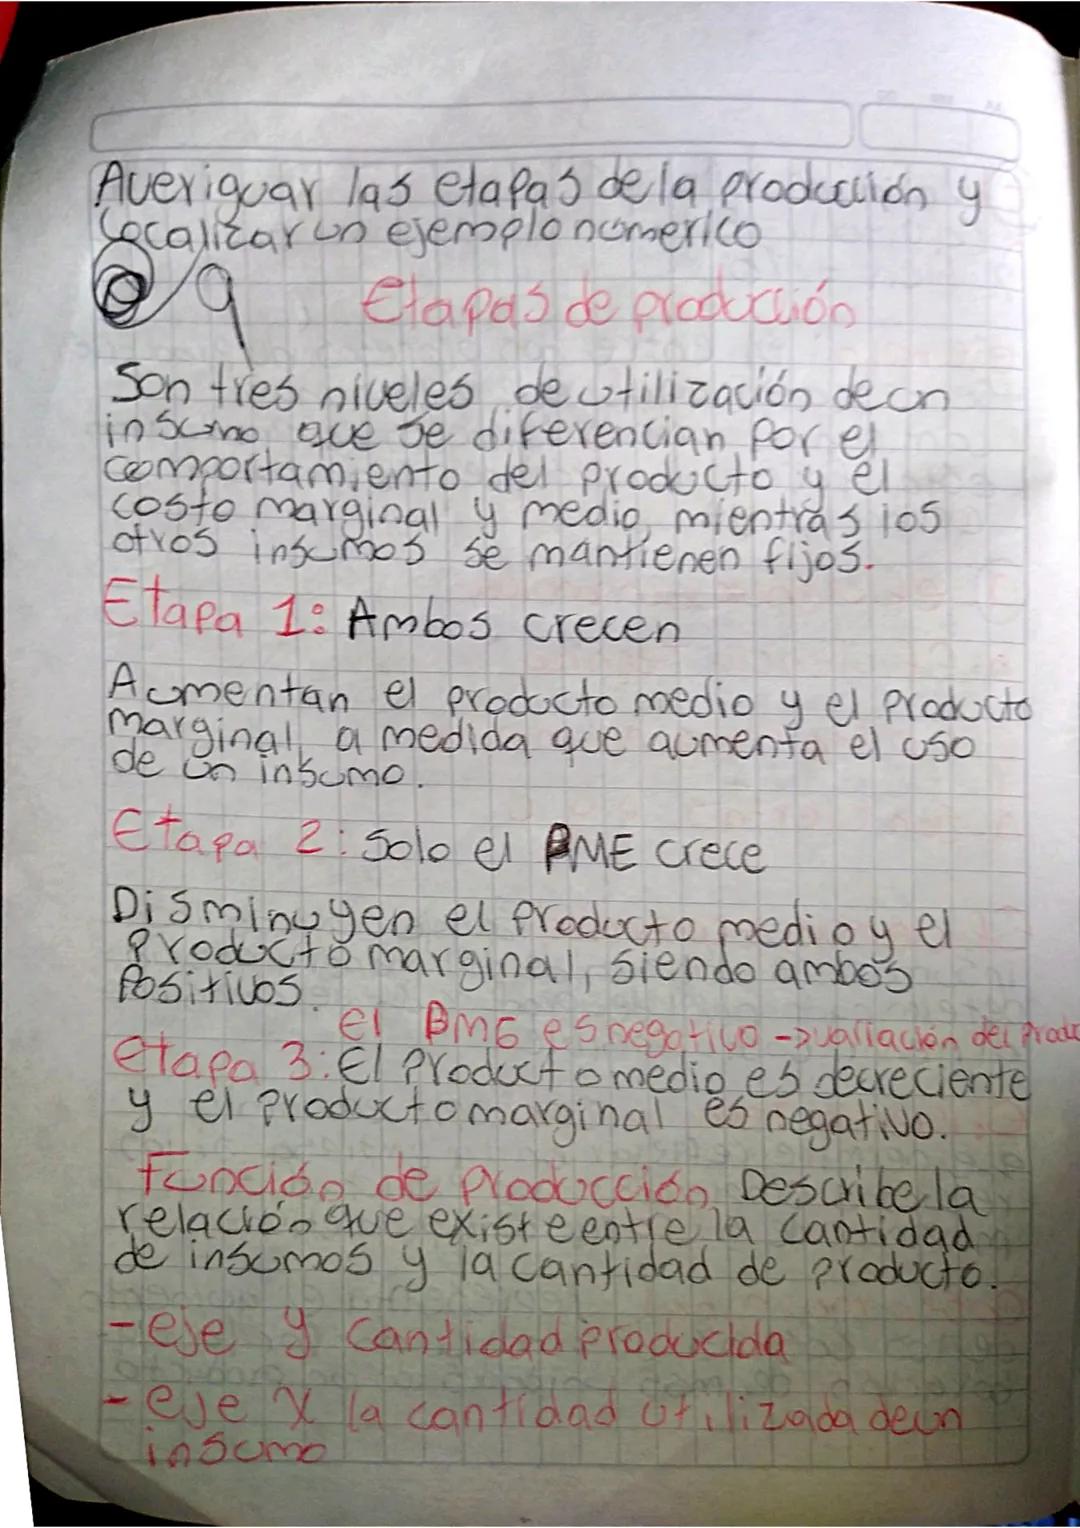 Averiguar las etapas de la producción y
localizar un ejemplo numerico
9
Etapas de producción
Son tres niveles de utilización de un
insumo que se diferencian por el
comportamiento del producto y el
costo marginal y medio, mientras los
otros insumos se mantienen fijos.
Etapa 1: Ambos crecen
Aumentan el producto medio y el producto
marginal, a medida que aumenta el uso
de un insumo.
Etapa 2: Solo el PME crece
Disminuyen el producto medio y el
producto marginal, siendo ambos
positivos.
el PMG es negativo -> variación del
etapa 3: El producto medio es decreciente
y el producto marginal es negativo.
Función de producción Describe la
relación que existe entre la cantidad
de insumos y la cantidad de producto.
- eje y cantidad producida
- eje x la cantidad utilizada de un
insumo